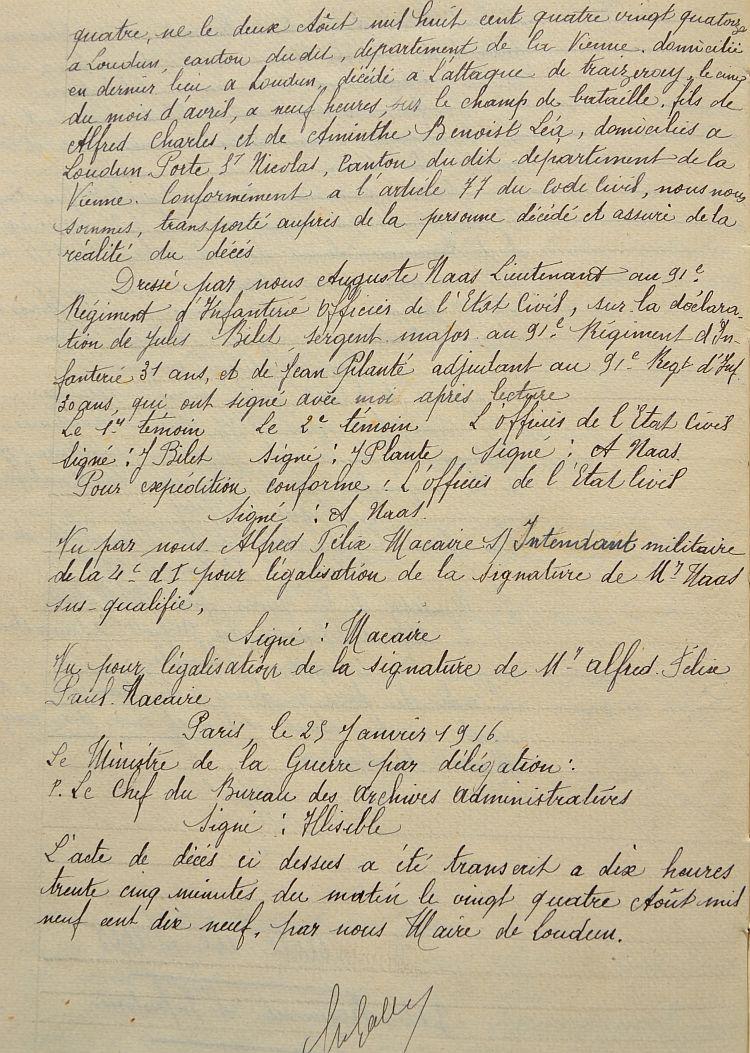 quatre, né le deux Août mil huit cent quatre vingt quatorze
a Loudun, canton dudit, département de la Vienne. domicilié
en dernier lieu a Loudun, décédé a l'attaque de traizeroy, le cinq
du mois d'avril, a neuf heures, sur le champ de bataille. fils de
Alfred Charles, et de Aminthe Benoist Léa, domiciliés a
Loudun Porte St Nicolas, Canton dudit département de la
Vienne. Conformément a l'article 77 du Code Civil, nous nous
sommes, transporté auprès de la personne décédé et assuré de la
réalité du décés
Dressé par nous Auguste Naas Lieutenant au 91e
Régiment d'Infanterie Officier de l'Etat Civil, sur la déclara-
tion de Jules Bilet, sergent major au 91e Régiment d'In-
fanterie 31 ans, et de Jean Planté adjudant au 91e Regt d'Inf
30 ans, qui ont signé avec moi après lecture
Le 1er témoin Le 2e témoin L'officier de l'Etat Civil
Signé : J Bilet Signé : J Plante Signé : A Naas
Pour expédition conforme : L'officier de l'Etat Civil
Signé : A Naas.
Vu par nous Alfred Félix Macaire S/ Intendant militaire
de la 4e d I pour légalisation de la signature de Mr Naas
sus-qualifié,
Signé : Macaire
Vu pour légalisation de la signature de Mr Alfred Félix
Paul Macaire
Paris, le 25 Janvier 1916
Le Ministre de la Guerre par délégation :
P. Le Chef du Bureau des Archives Administratives
Signé : Illisible
L'acte de décés ci dessus a été transcrit a dix heures
trente cinq minutes du matin le vingt quatre Août mil
neuf cent dix neuf, par nous Maire de Loudun.